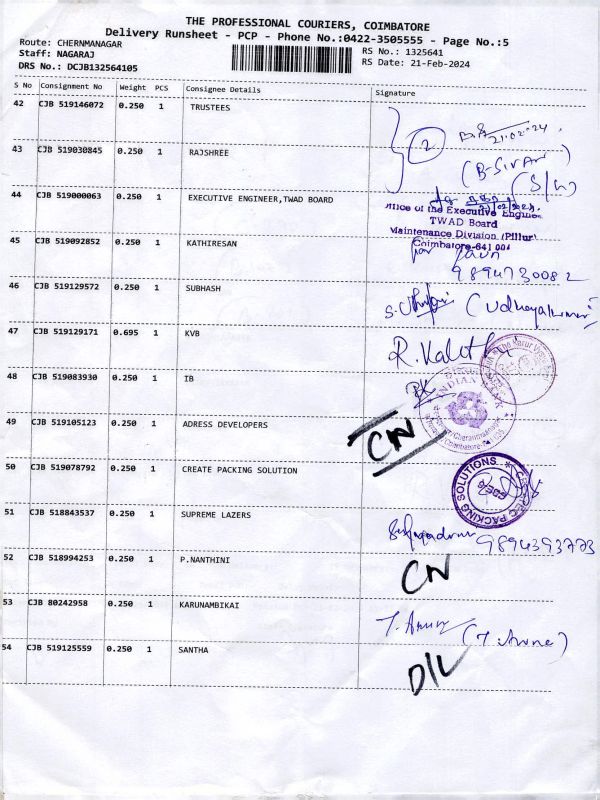 THE PROFESSIONAL COURIERS, COIMBATORE
Delivery Runsheet - PCP - Phone No.:0422-3505555 - Page No.:5
Route: CHERNMANAGAR
RS No.: 1325641
Staff: NAGARAJ
RS Date: 21-Feb-2024
DRS No.: DCJB132564105
S No Consignment No Weight PCS Consignee Details Signature
42 CJB 519146072 0.250 1 TRUSTEES
2 21.02.2024.
43 CJB 519030845 0.250 1 RAJSHREE
(B-SIVA
(S/W)
44 CJB 519000063 0.250 1 EXECUTIVE ENGINEER,TWAD BOARD
Office of the Executive Engineer
TWAD Board
Maintenance Division (Pillur)
Coimbatore-641 004
45 CJB 519092852 0.250 1 KATHIRESAN
9894730082
46 CJB 519129572 0.250 1 SUBHASH
(Udhayakumar)
47 CJB 519129171 0.695 1 KVB
48 CJB 519083930 0.250 1 IB
INDIAN BANK
49 CJB 519105123 0.250 1 ADRESS DEVELOPERS
CN
50 CJB 519078792 0.250 1 CREATE PACKING SOLUTION
PACKING SOLUTIONS
51 CJB 518843537 0.250 1 SUPREME LAZERS
9894393773
52 CJB 518994253 0.250 1 P.NANTHINI
CN
53 CJB 80242958 0.250 1 KARUNAMBIKAI
54 CJB 519125559 0.250 1 SANTHA
D/L